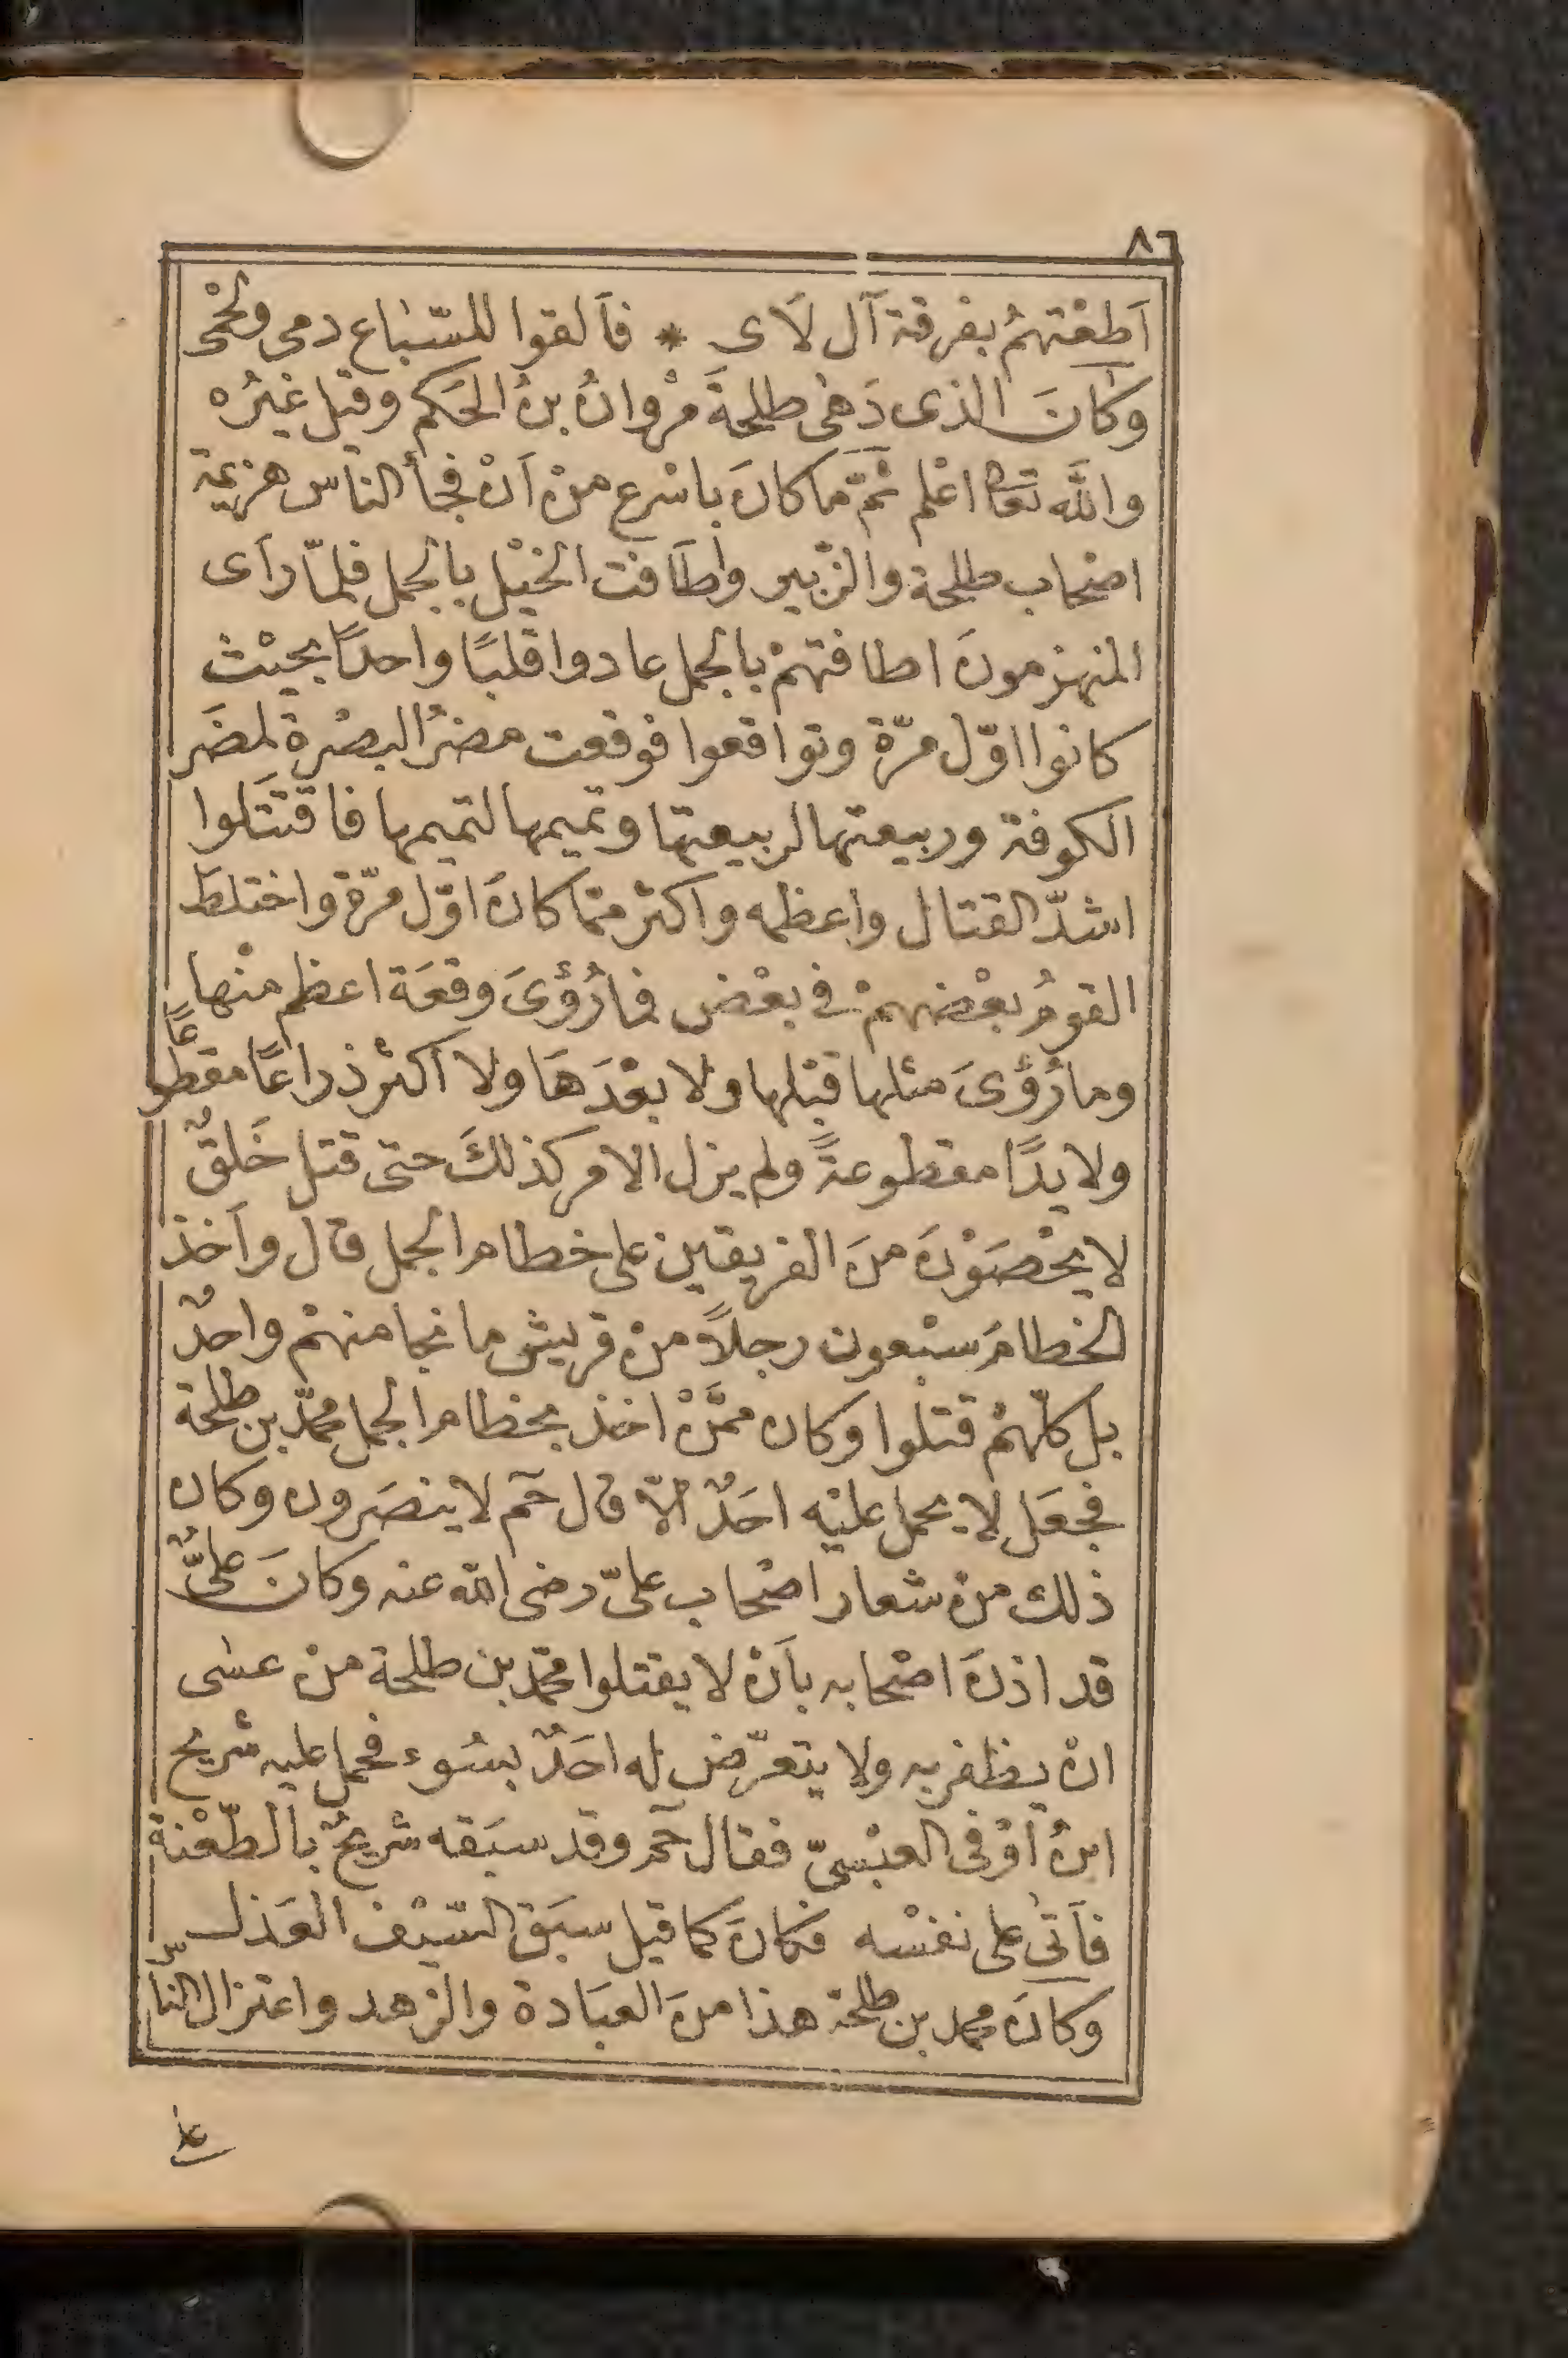 ٨٦
اَطعْتهمُ بفرقة آل لَاى * فاَلقوا للسّباع دمى ولحْمى
وكانَ الذى رَمٰى طلحةَ مرْوانُ بنُ الحَكم وقيل غيْرُه
والله تعالى اعْلم ثمّ ما كانَ باسْرع منْ اَنْ فجأ الناس هزيمة
اصْحاب طلحة والزّبير واَطاَفت الخيْل بالجمل فلمّا رآى
المنهزمونَ اطافتهمْ بالجمل عادوا قلبًا واحدًا بحيْث
كانوا اوّل مرّة وتواقعوا فوقعت مضرُ البصْرة لمضَر
الكوفة وربيعتها لربيعتها وتميمها لتميمها فاقتتَلوا
اشدّ القتال واعظمه واكثر ممّا كانَ اوّل مرّة واختلطَ
القومُ بعْضهمْ فى بعْض فما رُؤىَ وقعَة اعظم منْها
وما رُؤىَ مثلها قبْلها ولا بعْدَهَا ولا اكثر ذراعًا مقطوعًا
ولا يدًا مقطوعةً ولم يزل الامر كذلكَ حتى قتل خَلقٌ
لا يحْصَوْنَ منَ الفريقين على خطام الجمل قال واَخذ
الخطامَ سبْعون رجلاً منْ قريش ما نجا منهمْ واحدٌ
بل كلّهمْ قتلوا وكان ممَّنْ اخذ بخطام الجمل محمّد بن طلحة
فجعَل لا يحمل عليْه احَدٌ الّا قال حٓم لا ينصَرون وكان
ذلك منْ شعار اصْحاب علىّ رضى الله عنه وكانَ علىٌّ
قد اذنَ اصْحابه باَنْ لا يقتلوا محمّد بن طلحة منْ عسٰى
انْ يظفر به ولا يتعرّض له احَدٌ بسُوء فحمل عليه شريح
ابنُ اَوْفى العبْسىّ فقال حٓم وقد سبَقه شريحٌ بالطّعْنة
فاَتىٰ على نفسْه فكانَ كما قيل سبَق السّيْف العَذل
وكانَ محمد بن طلحة هذا منَ العبَادة والزهد واعتزال الناّس